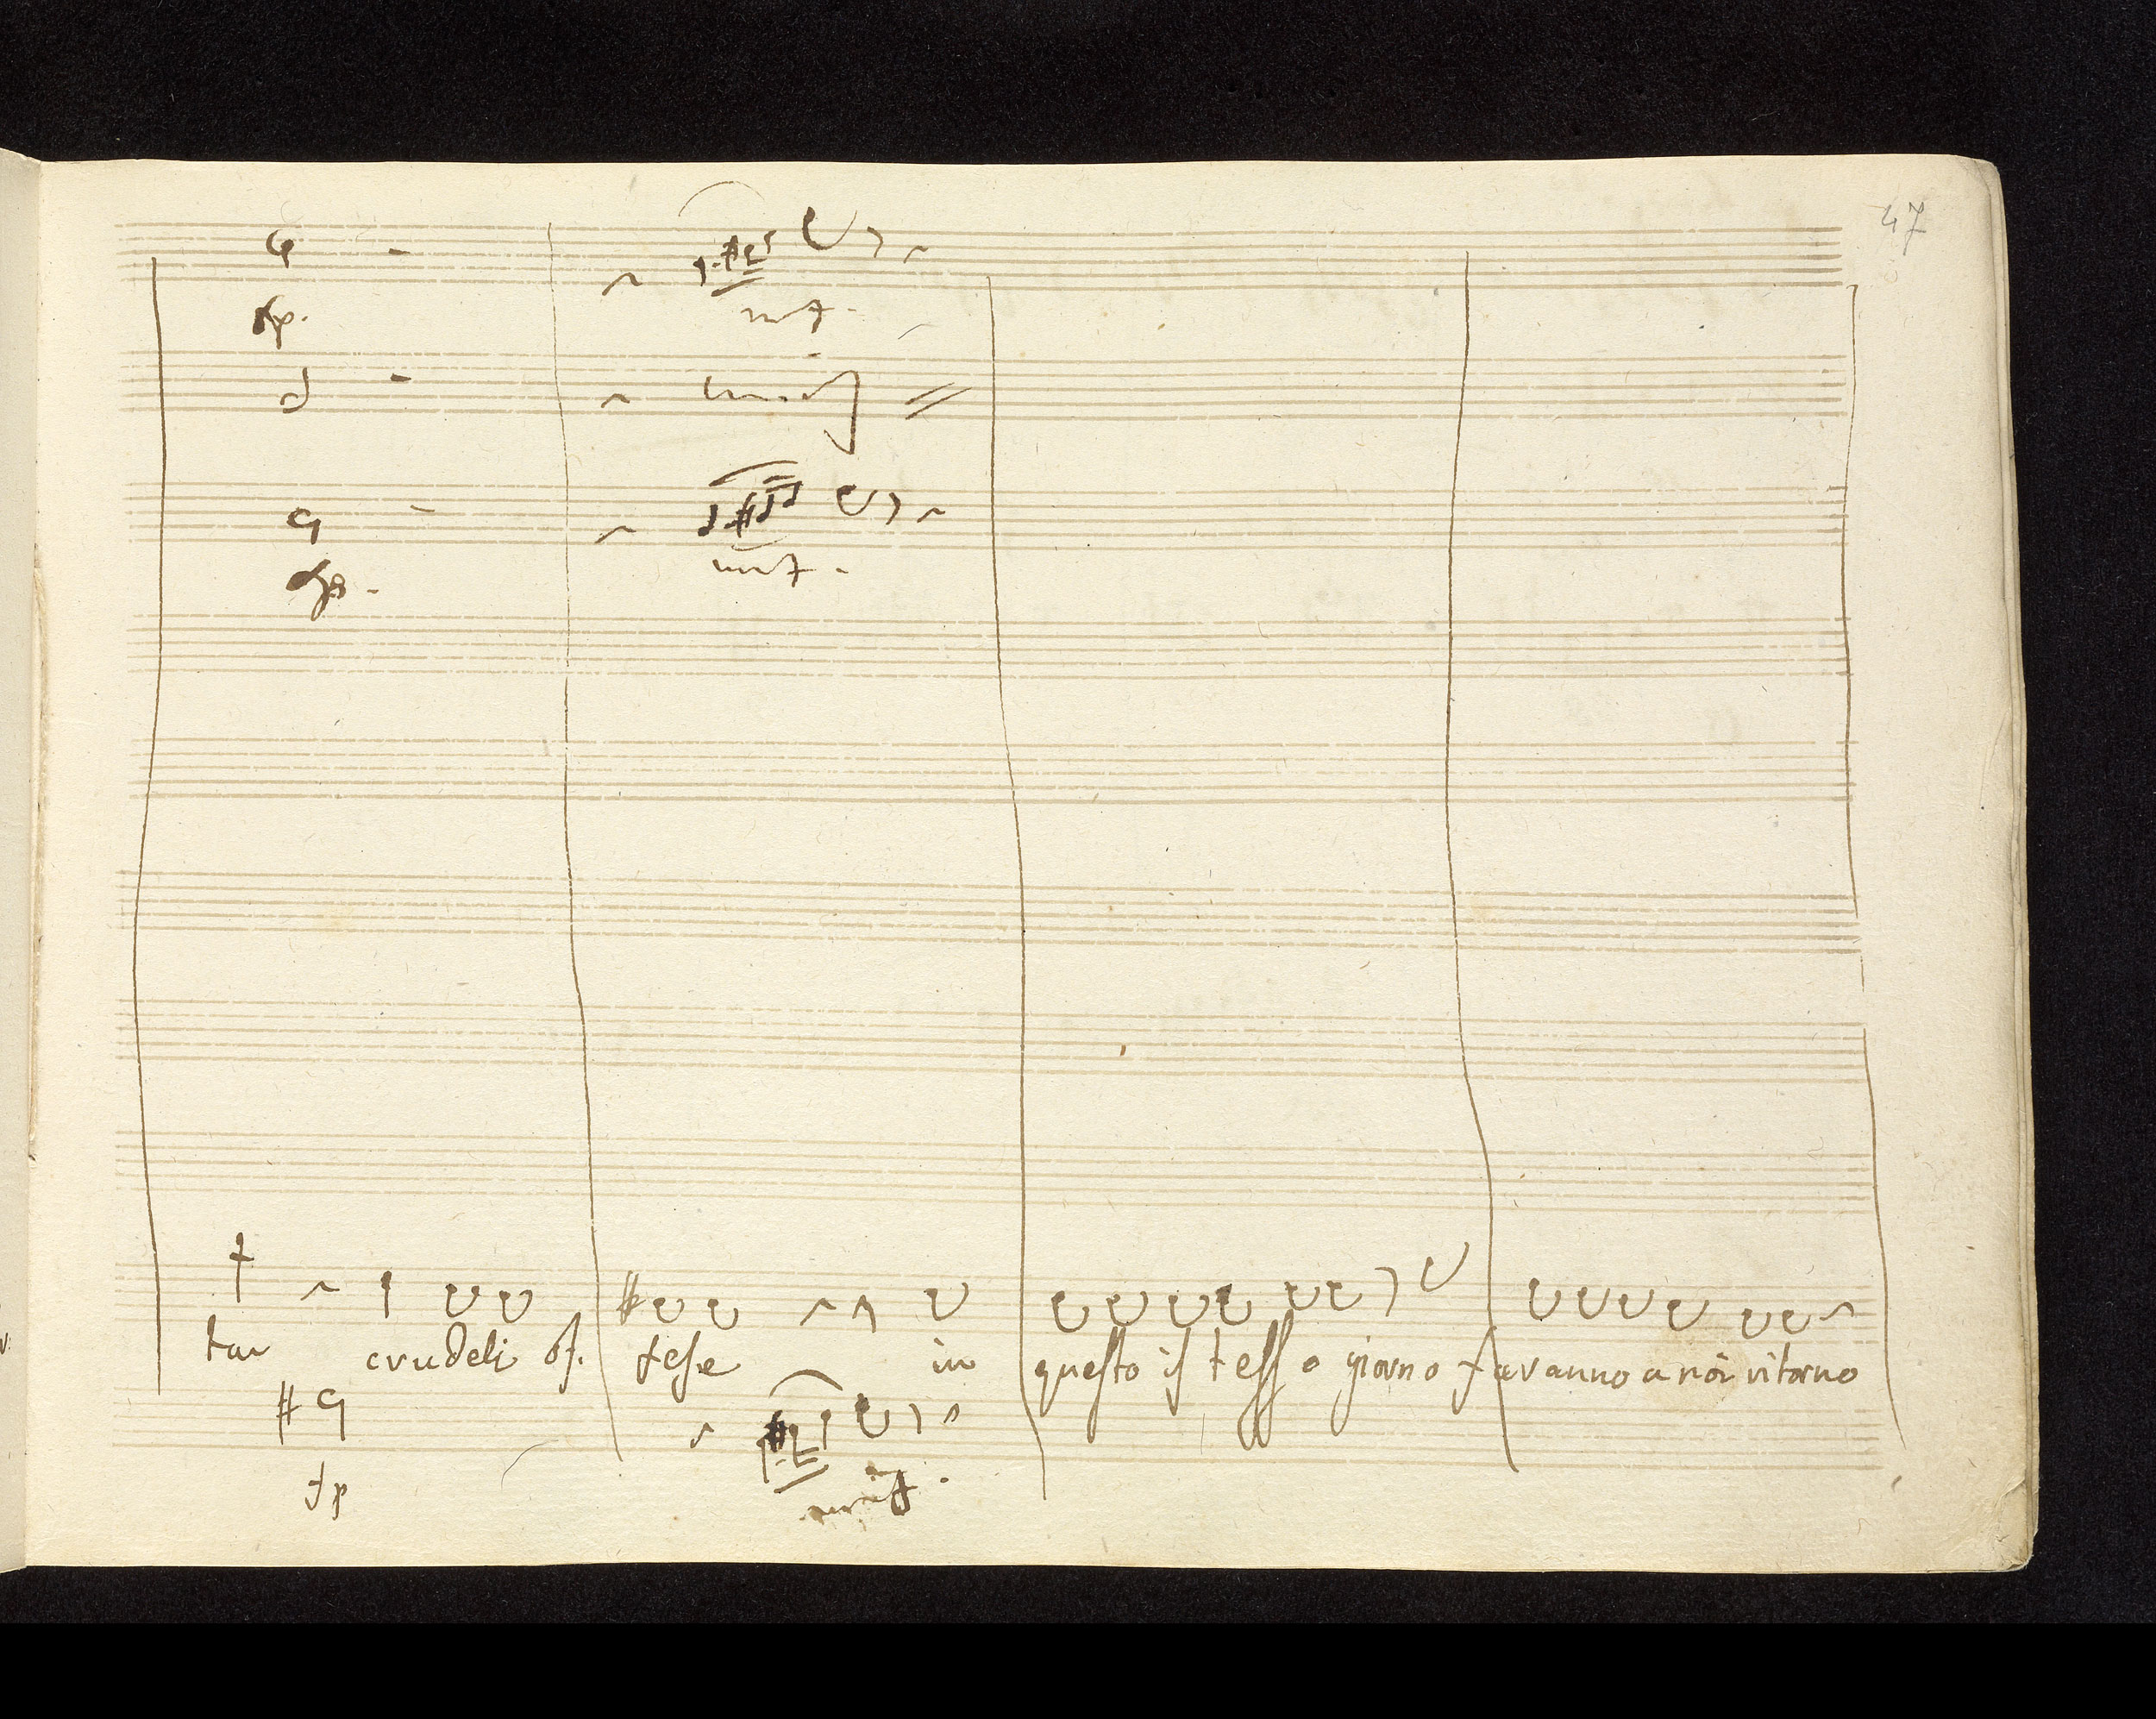 47
fp.
unis
fp.
tar crudeli of. fese in questo istesso giorno faranno a noi ritorno
fp